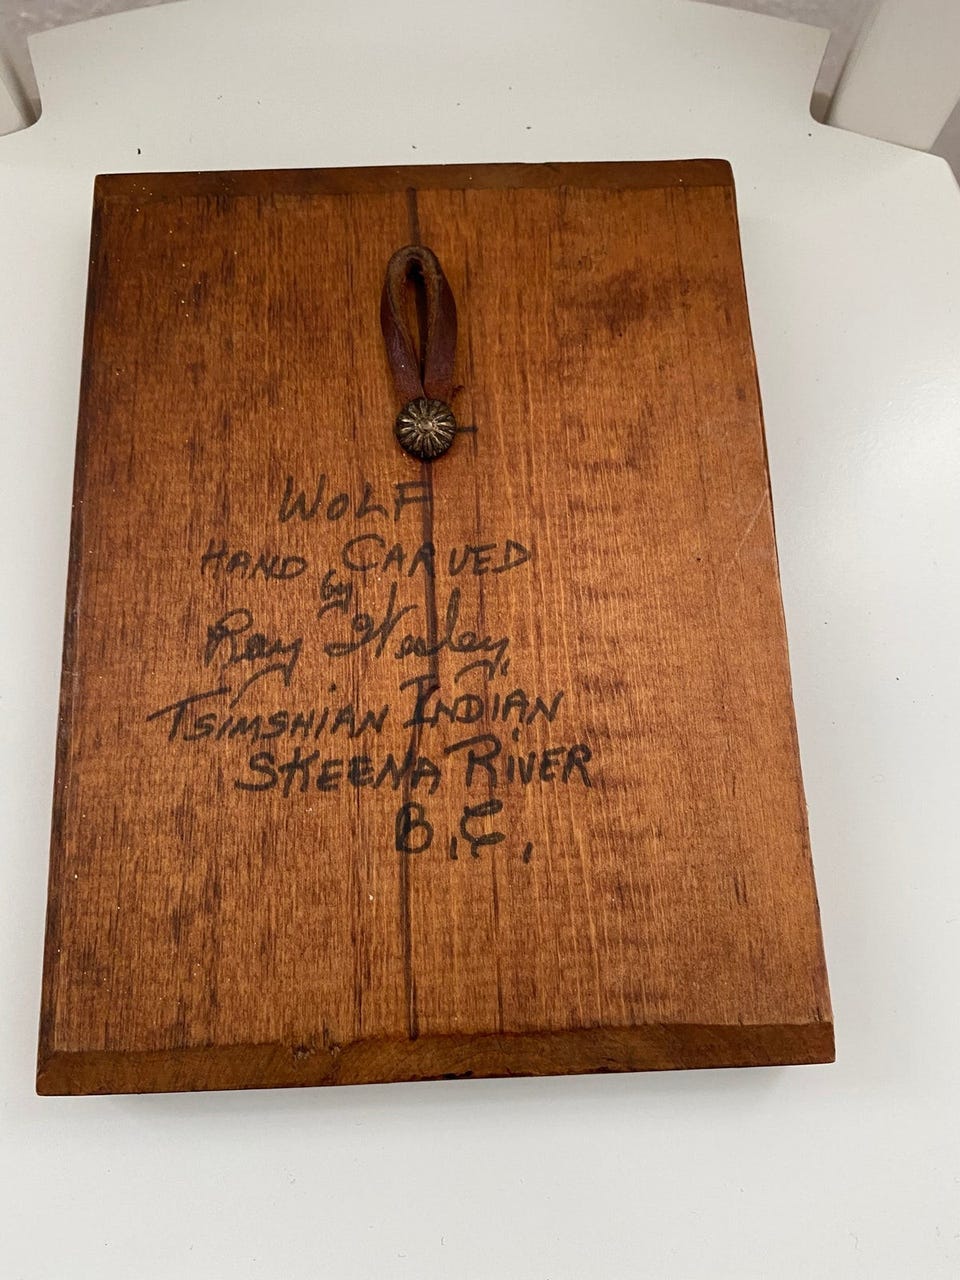 WOLF
HAND CARVED
by
Ray
TSIMSHIAN INDIAN
SKEENA RIVER
B.C.